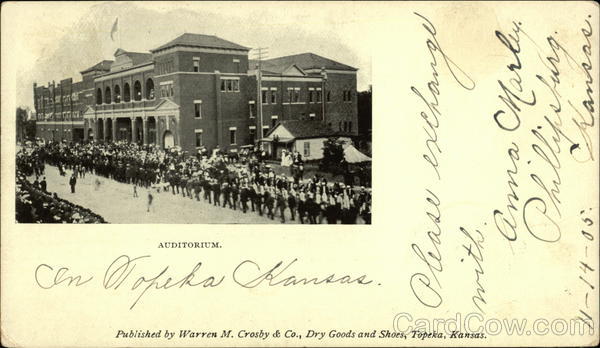 AUDITORIUM.
In Topeka Kansas.
Published by Warren M. Crosby & Co., Dry Goods and Shoes, Topeka, Kansas.
Please exchange
with.
Anna Marley.
Phillipsburg.
Kansas.
11-14-05.
CardCow.com